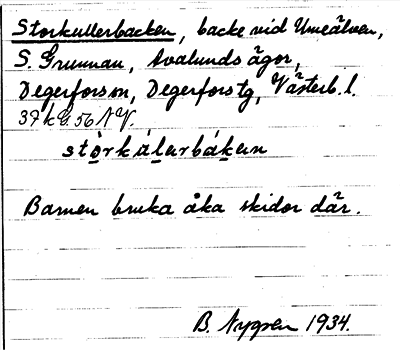 Storkullerbacken, backe vid Umeälven,
S. Grunnan, Avalunds ägor,
Degerfors sn, Degerfors tg, Västerb. l.
37 k G. 56 NV.
stòrkálerbákein
Barnen bruka åka skidor där.
B. Nygren 1934.